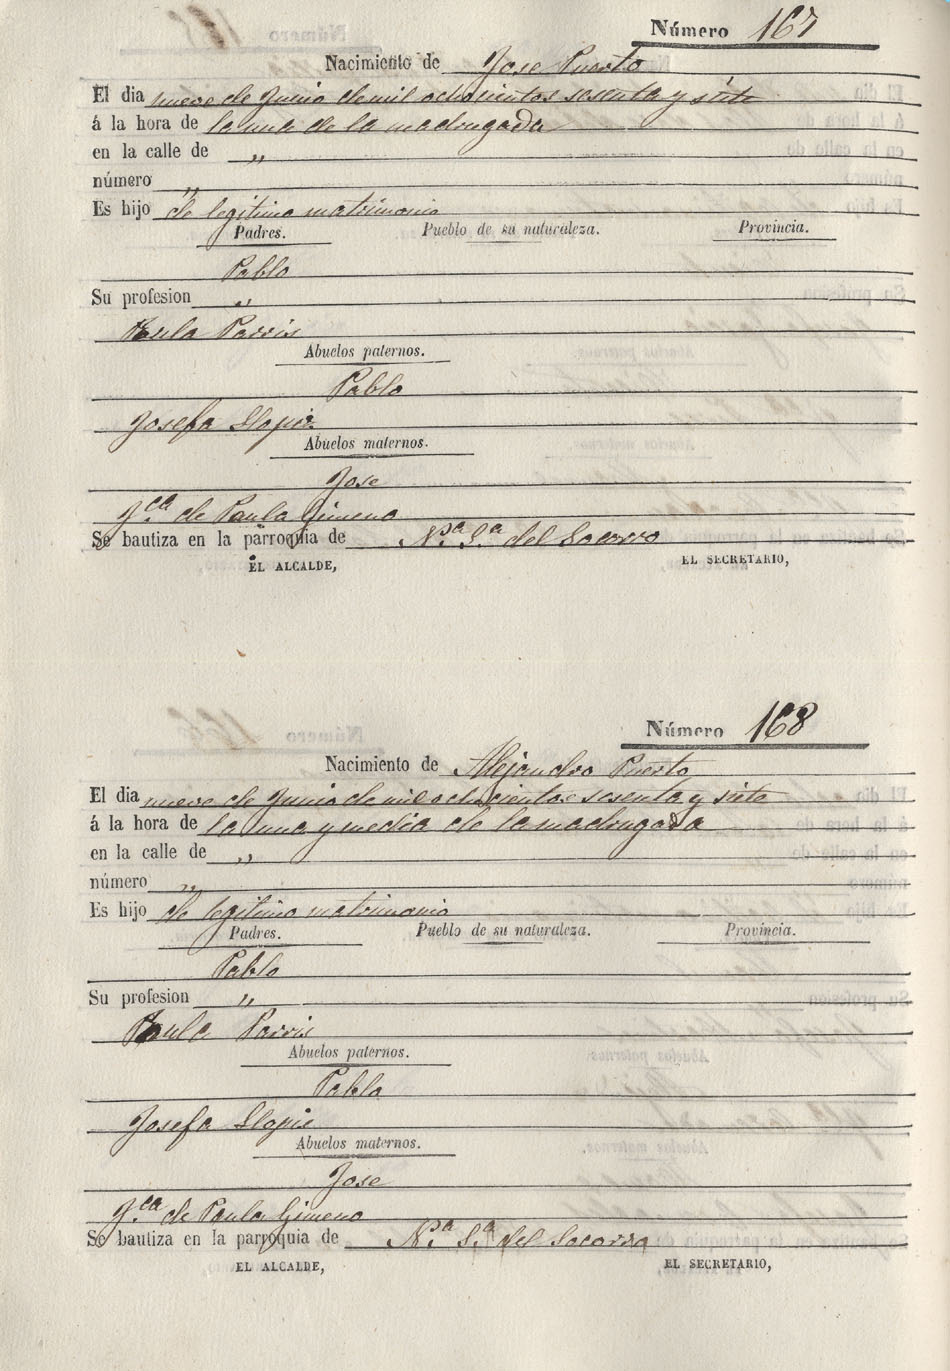 Número 167
Nacimiento de Jose Puerto
El dia nueve de Junio de mil ochocientos sesenta y siete
á la hora de la una de la madrugada
en la calle de „
número „
Es hijo de legitimo matrimonio
Padres. Pueblo de su naturaleza. Provincia.
Pablo
Su profesion „
Paula Parris
Abuelos paternos.
Pablo
Josefa Llopis
Abuelos maternos.
Jose
F.ca de Paula Gimeno
Se bautiza en la parroquia de N.a S.a del Socorro
EL ALCALDE, EL SECRETARIO,
Número 168
Nacimiento de Alejandro Puerto
El dia nueve de Junio de mil ochocientos sesenta y siete
á la hora de la una y media de la madrugada
en la calle de „
número „
Es hijo de legitimo matrimonio
Padres. Pueblo de su naturaleza. Provincia.
Pablo
Su profesion „
Paula Parris
Abuelos paternos.
Pablo
Josefa Llopis
Abuelos maternos.
Jose
F.ca de Paula Gimeno
Se bautiza en la parroquia de N.a S.a del Socorro
EL ALCALDE, EL SECRETARIO,